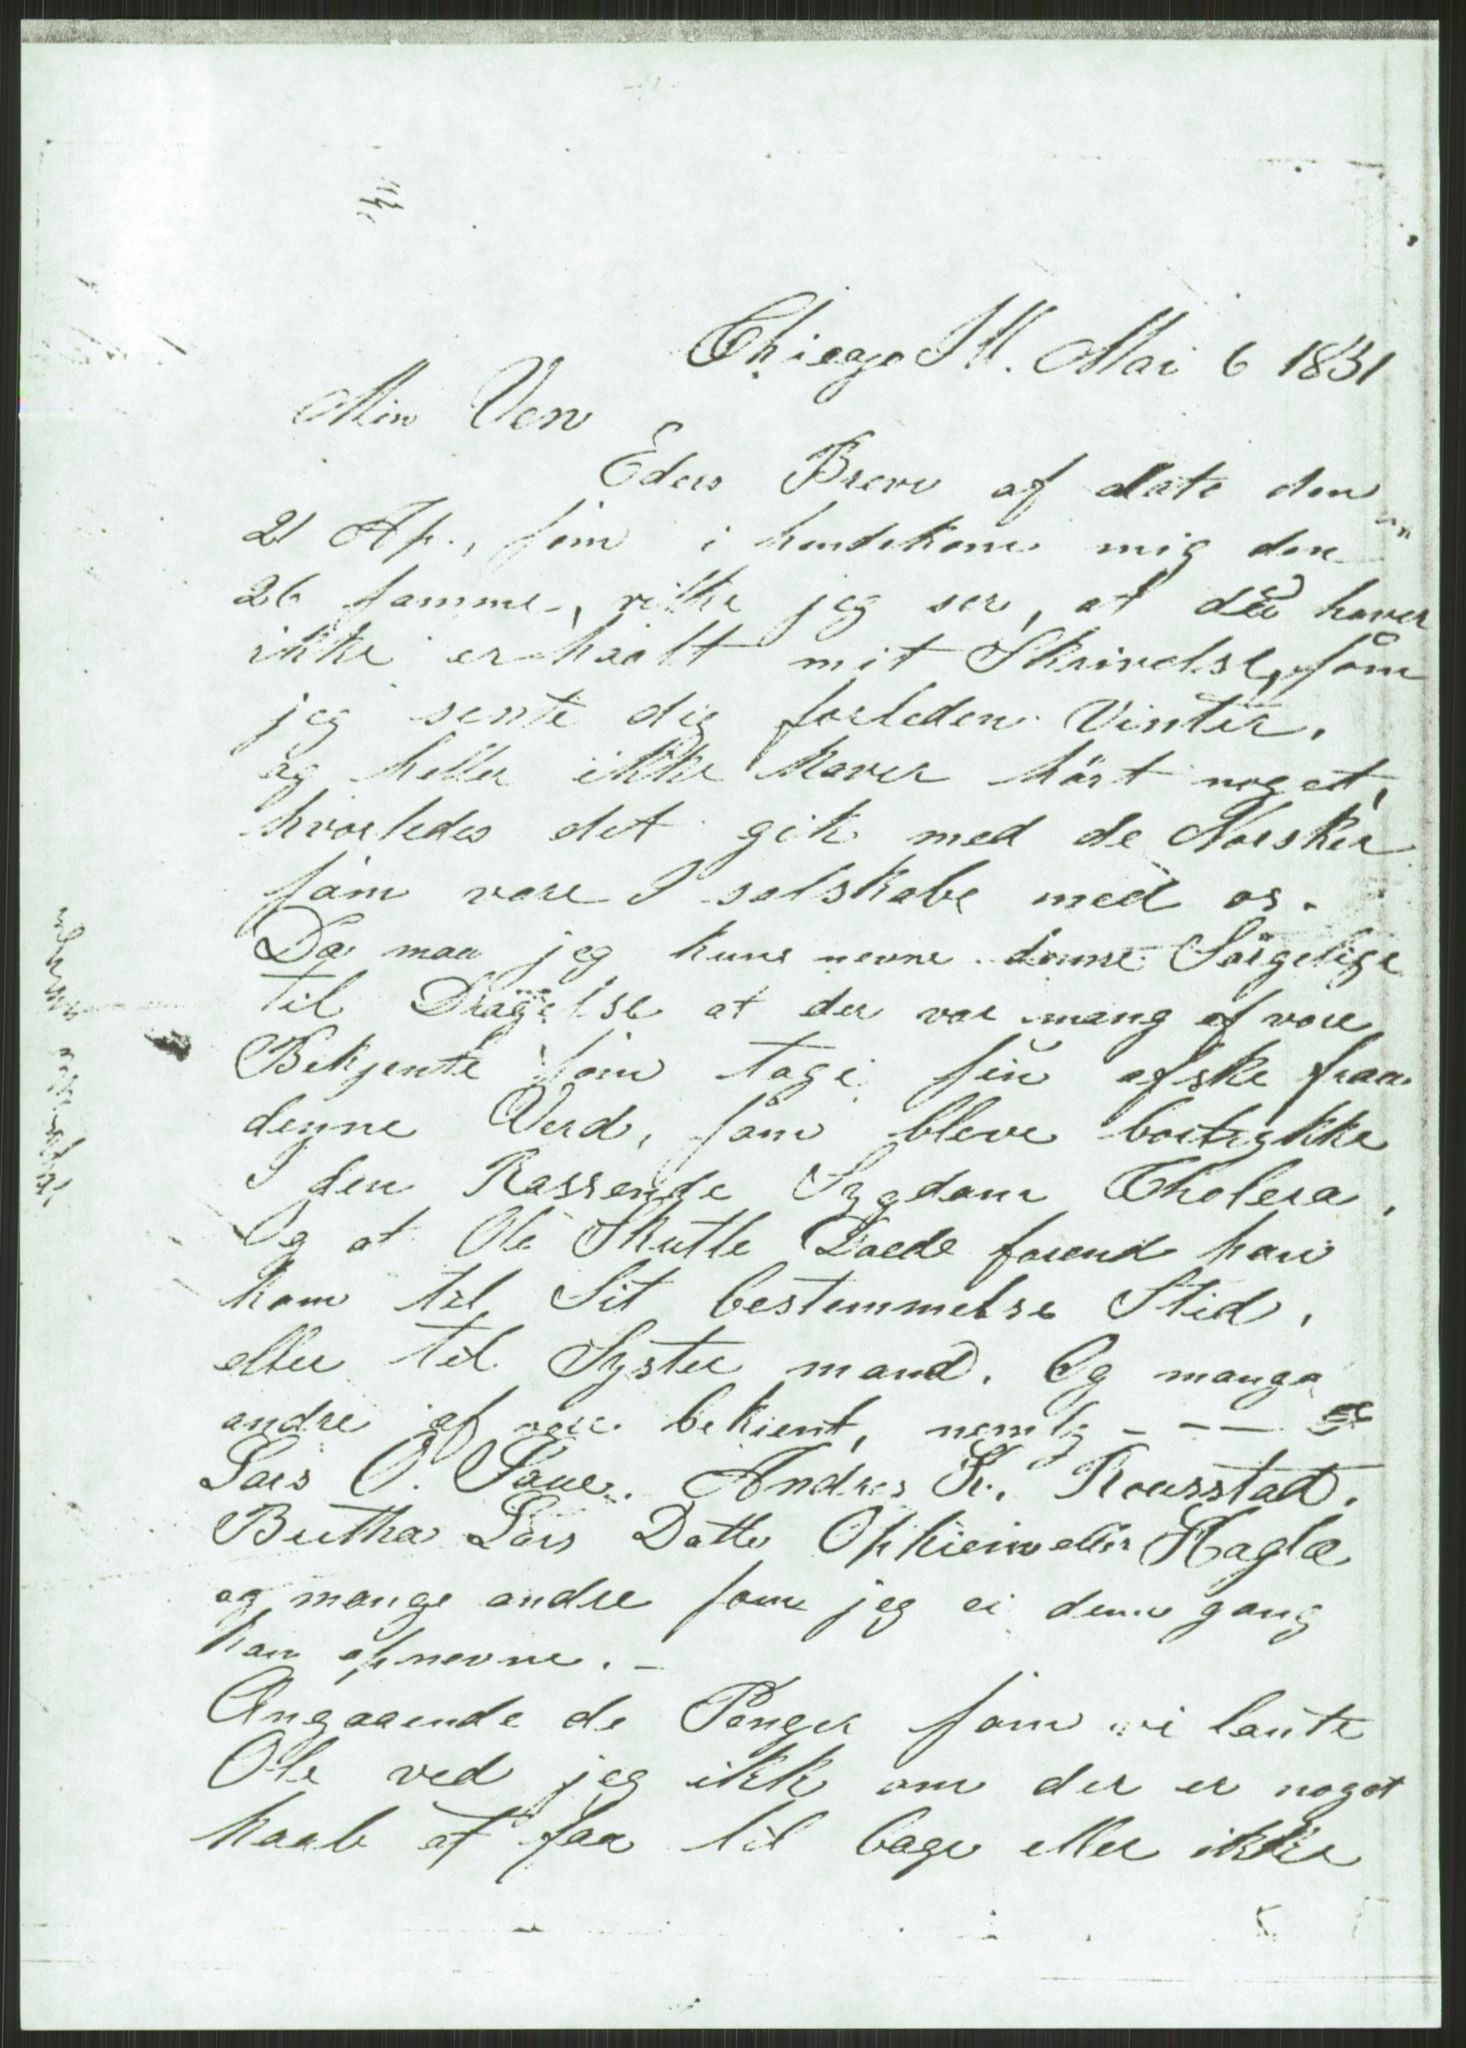 Chicago Ill. Mai 6 1831
Min Ven
Eders Breve af date den
21 Ap., som i hendekom mig den
26 samme, vilke jeg ser, at du haver
ikke er haalt mit Skrivelse, som
jeg sente dig forleden Vinter.
og heller ikke haver hört noget,
hvorledes det gik med de Norsker
som vare I selskabe med os.
Da maa jeg kune nevne denne Sörgelige
til Dragelse at der var mang af vore
Bekjente som tage sin afske fraa
denne Verd, som bleve bortrykke
I den Rassende Sygdom Cholera,
Og at Ole Skutle Doede forend han
kom til Sit bestemmelse Sted,
eller til Syster mand. Og mange
andre af vore bekient, nemlig - - -
Lars O. Saue. Andres K. Rousstad.
Bertha Lars Datte Opheim eller Hagla
og mange andre som jeg ei denne gang
kan opnevne. -
Angaaende de Penger som vi laante
Ole ved jeg ikk om der er noget
haab at faa til bage eller ikke